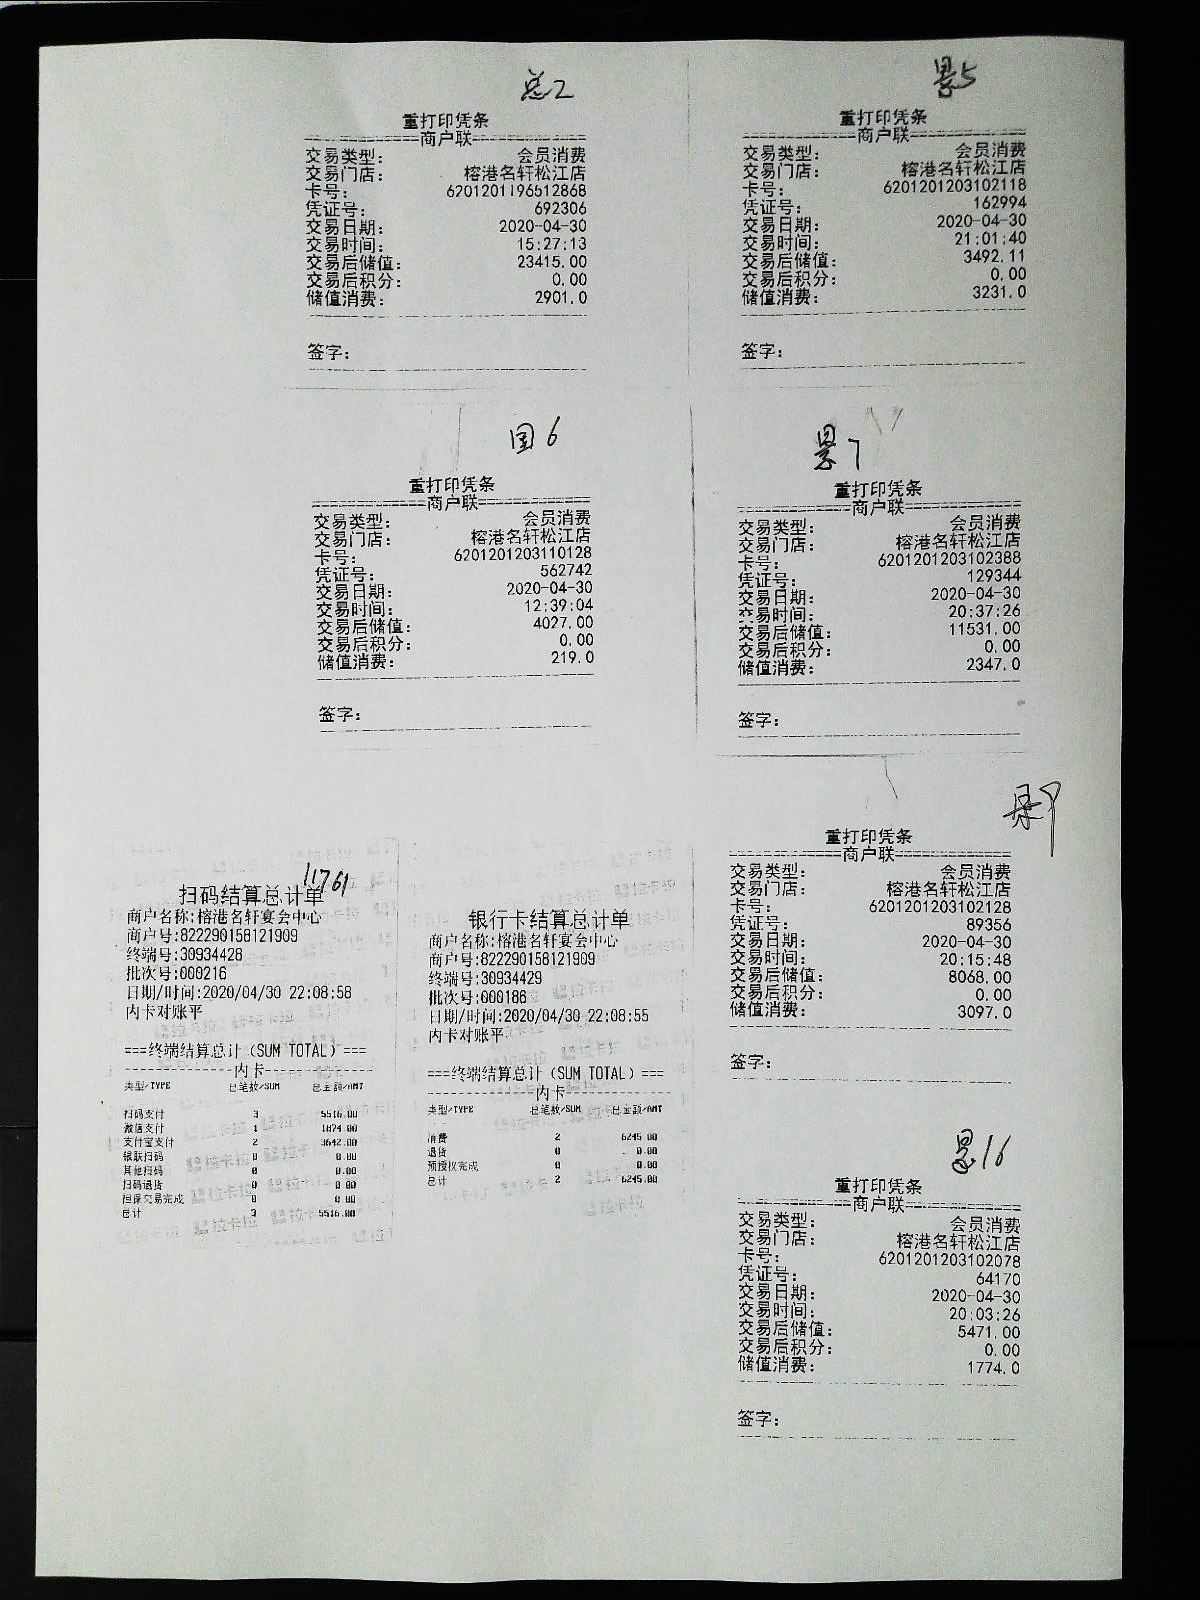 总2
重打印凭条
商户联
交易类型: 会员消费
交易门店: 榕港名轩松江店
卡号: 6201201196512868
凭证号: 692306
交易日期: 2020-04-30
交易时间: 15:27:13
交易后储值: 23415.00
交易后积分: 0.00
储值消费: 2901.0
签字:
景5
重打印凭条
商户联
交易类型: 会员消费
交易门店: 榕港名轩松江店
卡号: 6201201203102118
凭证号: 162994
交易日期: 2020-04-30
交易时间: 21:01:40
交易后储值: 3492.11
交易后积分: 0.00
储值消费: 3231.0
签字:
国6
重打印凭条
商户联
交易类型: 会员消费
交易门店: 榕港名轩松江店
卡号: 6201201203110128
凭证号: 562742
交易日期: 2020-04-30
交易时间: 12:39:04
交易后储值: 4027.00
交易后积分: 0.00
储值消费: 219.0
签字:
景7
重打印凭条
商户联
交易类型: 会员消费
交易门店: 榕港名轩松江店
卡号: 6201201203102388
凭证号: 129344
交易日期: 2020-04-30
交易时间: 20:37:26
交易后储值: 11531.00
交易后积分: 0.00
储值消费: 2347.0
签字:
重打印凭条
商户联
交易类型: 会员消费
交易门店: 榕港名轩松江店
卡号: 6201201203102128
凭证号: 89356
交易日期: 2020-04-30
交易时间: 20:15:48
交易后储值: 8068.00
交易后积分: 0.00
储值消费: 3097.0
签字:
11761
扫码结算总计单
商户名称:榕港名轩宴会中心
商户号:822290158121909
终端号:30934428
批次号:000216
日期/时间:2020/04/30 22:08:58
内卡对账平
===终端结算总计(SUM TOTAL)===
内卡
类型/TYPE 总笔数/SUM 总金额/AMT
扫码支付 3 5516.00
微信支付 1 1874.00
支付宝支付 2 3642.00
银联扫码 0 0.00
其他扫码 0 0.00
扫码退货 0 0.00
担保交易完成 0 0.00
总计 3 5516.00
银行卡结算总计单
商户名称:榕港名轩宴会中心
商户号:822290158121909
终端号:30934429
批次号:000186
日期/时间:2020/04/30 22:08:55
内卡对账平
===终端结算总计(SUM TOTAL)===
内卡
类型/TYPE 总笔数/SUM 总金额/AMT
消费 2 6245.00
退货 0 0.00
预授权完成 0 0.00
总计 2 6245.00
景16
重打印凭条
商户联
交易类型: 会员消费
交易门店: 榕港名轩松江店
卡号: 6201201203102078
凭证号: 64170
交易日期: 2020-04-30
交易时间: 20:03:26
交易后储值: 5471.00
交易后积分: 0.00
储值消费: 1774.0
签字: